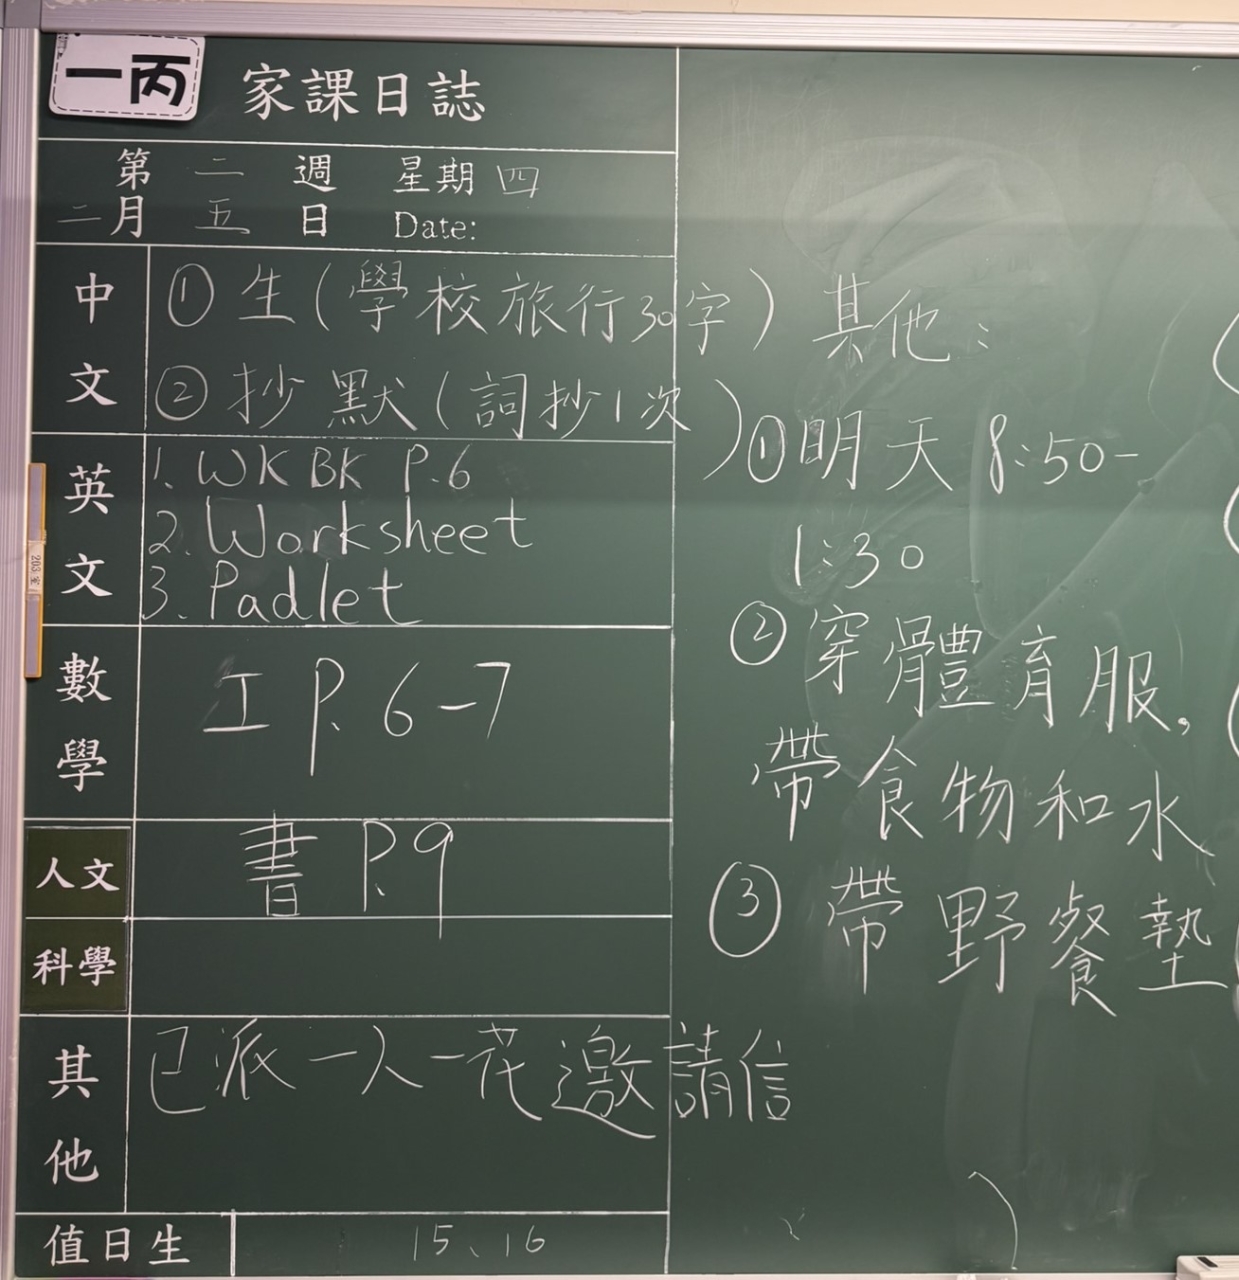 一丙 家課日誌
第 二 週 星期 四
二月 五 日 Date:
中文
① 生(學校旅行30字)
② 抄默(詞抄1次)
英文
1. WKBK P.6
2. Worksheet
3. Padlet
數學
工 P. 6-7
人文
書 P.9
科學
其他
已派一人一花邀請信
值日生 15、16
其他:
①明天 8:50-
1:30
②穿體育服,
帶食物和水
③ 帶野餐墊